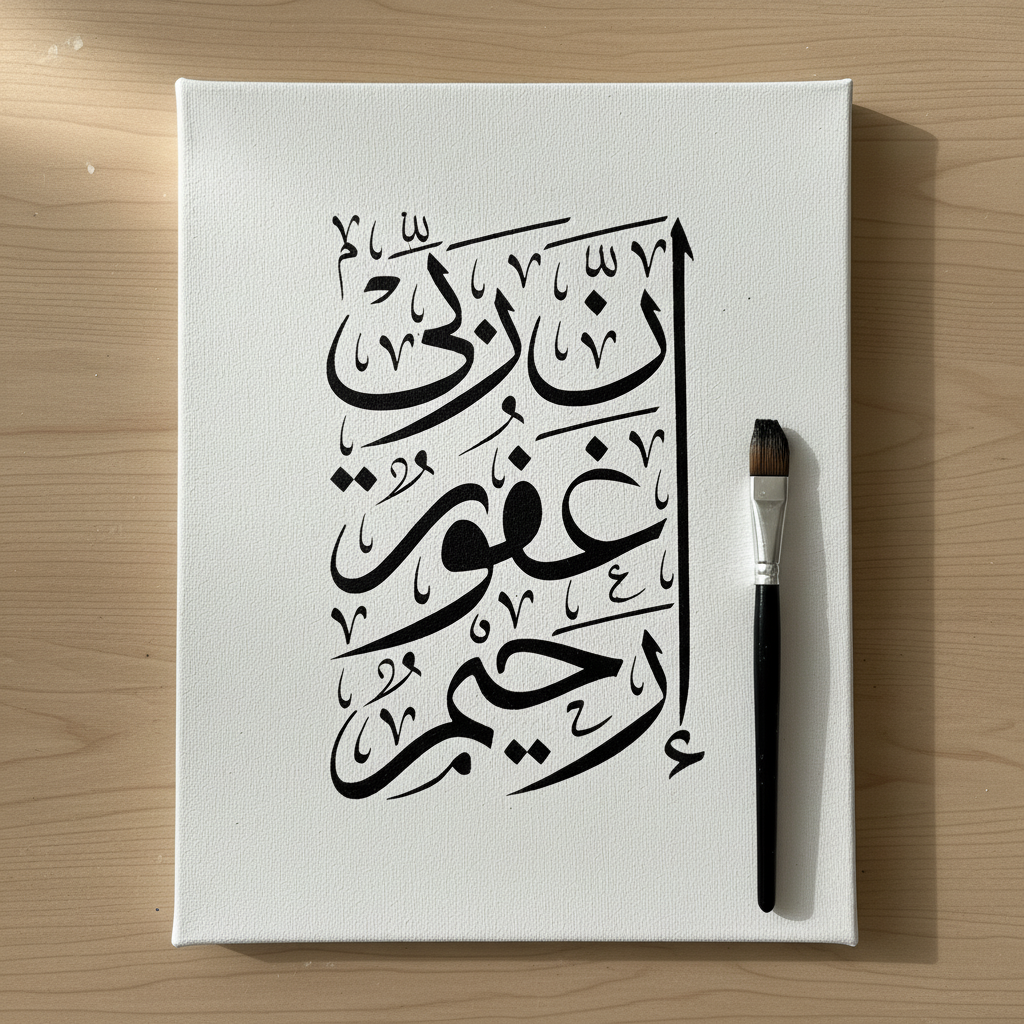 إنّ ربّي
غفورٌ
رحيمٌ